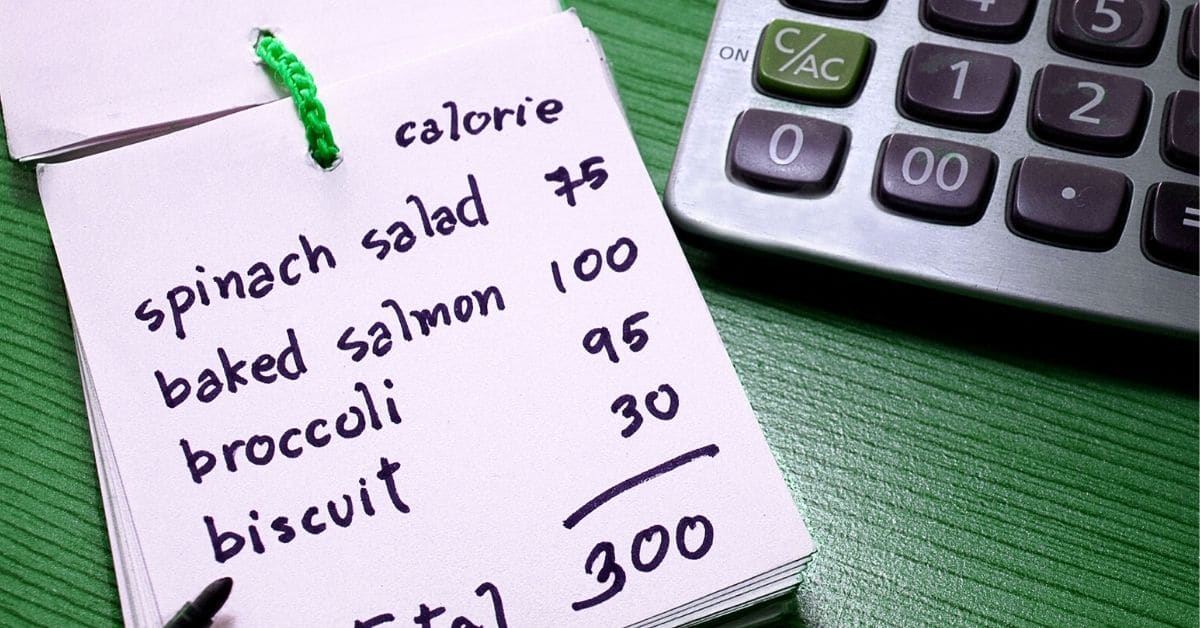 calorie
spinach salad 75
baked salmon 100
broccoli 95
biscuit 30
total 300
ON C/AC
4 5
1 2
0 00 .
=